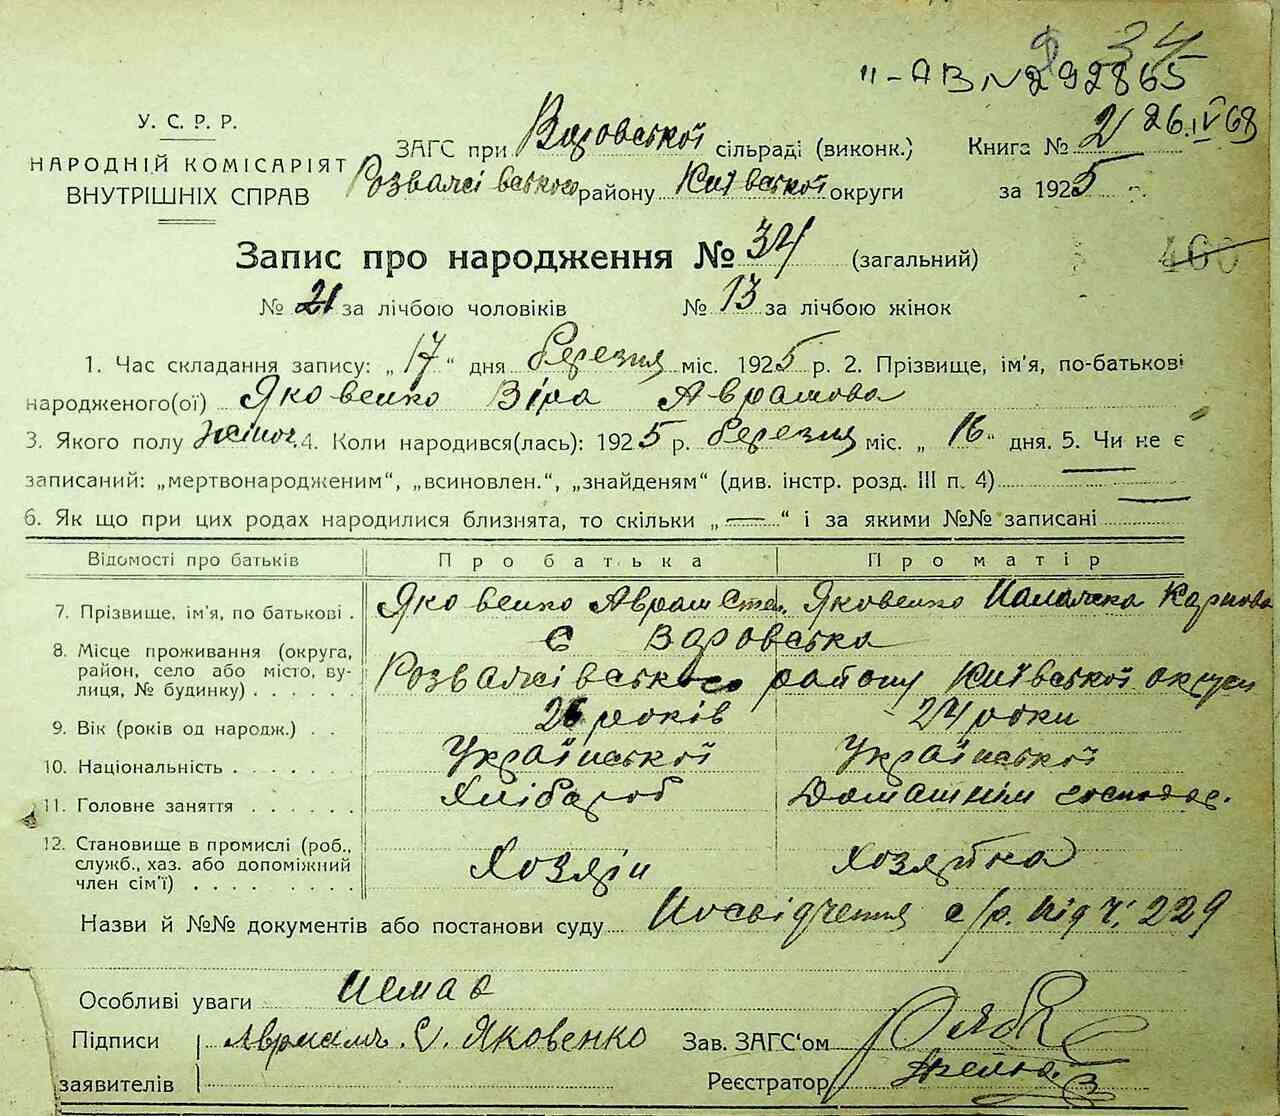 9 34
"-АВ № 292865
У. С. Р. Р.
НАРОДНІЙ КОМІСАРІЯТ
ВНУТРІШНІХ СПРАВ
ЗАГС при Варовської сільраді (виконк.) Книга № 2 26.IV 68
Розважівського району Київської округи за 1925 р.
Запис про народження № 34 (загальний) 460
№ 21 за лічбою чоловіків № 13 за лічбою жінок
1. Час складання запису: „17" дня березня міс. 1925 р. 2. Прізвище, ім'я, по-батькові
народженого(ої) Яковенко Віра Аврамова
3. Якого полу жіноч. 4. Коли народився(лась): 1925 р. березня міс. „16" дня. 5. Чи не є
записаний: „мертвонародженим", „всиновлен.", „знайденям" (див. інстр. розд. III п. 4) —
6. Як що при цих родах народилися близнята, то скільки „—" і за якими №№ записані —
Відомості про батьків Про батька Про матір
7. Прізвище, ім'я, по батькові . Яковенко Аврам Степ. Яковенко Палажка Карпова
8. Місце проживання (округа, район, село або місто, вулиця, № будинку) . . . . . с Варовська
Розважівського району Київської округи
9. Вік (років од народж.) . . 26 років 24 роки
10. Національність . . . . . . Української Української
11. Головне заняття . . . . . Хлібороб Домашнім господар.
12. Становище в промислі (роб., служб., хаз. або допоміжний член сім'ї) . . . . . Хозяін Хозяйка
Назви й №№ документів або постанови суду Посвідчення с/р. під ч; 229
Особливі уваги Немає
Підписи Аврамъ. С. Яковенко Зав. ЗАГС'ом
заявителів Реєстратор